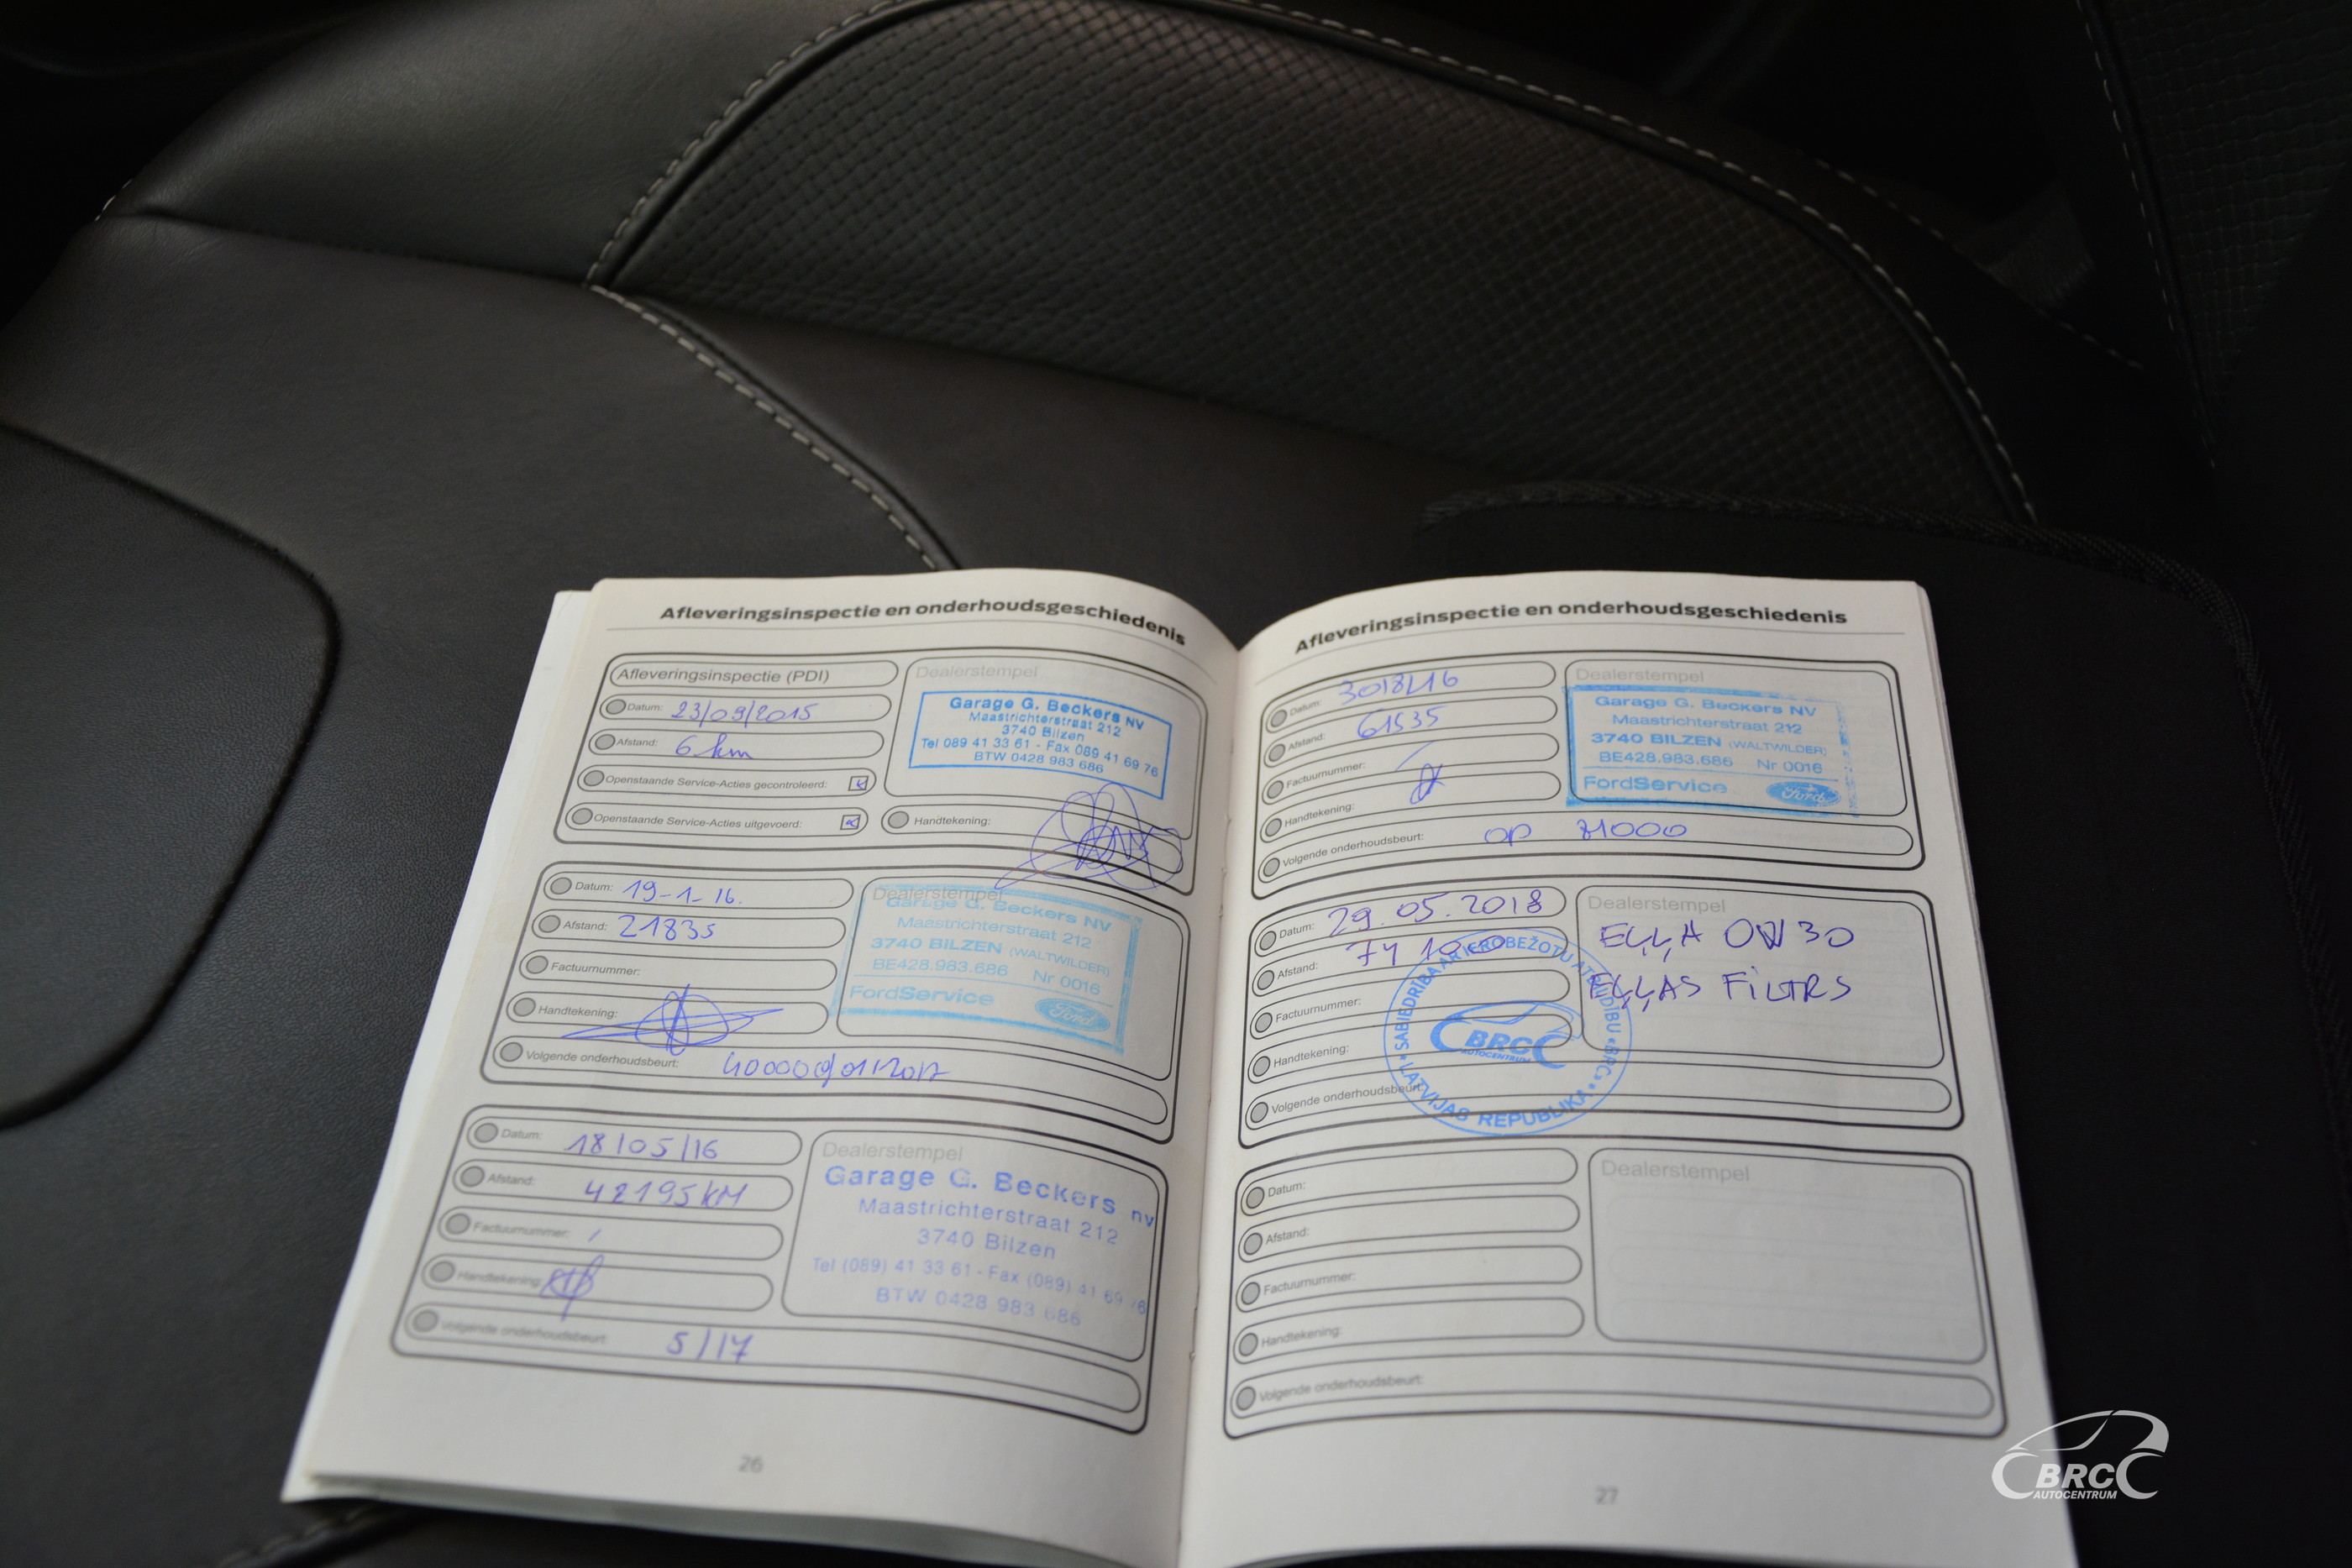 Afleveringsinspectie en onderhoudsgeschiedenis
Afleveringsinspectie (PDI)
Datum: 23/09/2015
Afstand: 6 km
Openstaande Service-Acties gecontroleerd:
Openstaande Service-Acties uitgevoerd:
Dealerstempel
Garage G. Beckers NV
Maastrichterstraat 212
3740 Bilzen
Tel 089 41 33 61 - Fax 089 41 69 76
BTW 0428 983 686
Handtekening:
Datum: 19-1-16.
Afstand: 21835
Factuurnummer:
Handtekening:
Volgende onderhoudsbeurt:
Dealerstempel
Garage G. Beckers NV
Maastrichterstraat 212
3740 BILZEN (WALTWILDER)
BE428.983.686 Nr 0016
FordService
Ford
Datum: 18/05/16
Afstand: 42195 KM
Factuurnummer: /
Handtekening:
Volgende onderhoudsbeurt: 5/17
Dealerstempel
Garage G. Beckers nv
Maastrichterstraat 212
3740 Bilzen
Tel (089) 41 33 61 - Fax (089) 41 69 76
BTW 0428 983 686
26
Afleveringsinspectie en onderhoudsgeschiedenis
Datum:
Afstand:
Factuurnummer:
Handtekening:
Volgende onderhoudsbeurt: OP
Dealerstempel
Garage G. Beckers NV
Maastrichterstraat 212
3740 BILZEN (WALTWILDER)
BE428.983.686 Nr 0016
FordService
Ford
Datum: 29.05.2018
Afstand:
Factuurnummer:
Handtekening:
Volgende onderhoudsbeurt:
Dealerstempel
EĻĻA 0W30
EĻĻAS FiLTRS
SABIEDRĪBA AR IEROBEŽOTU ATBILDĪBU «BRC»
LATVIJAS REPUBLIKA
BRC
AUTOCENTRUM
Datum:
Afstand:
Factuurnummer:
Handtekening:
Volgende onderhoudsbeurt:
Dealerstempel
27
BRC
AUTOCENTRUM